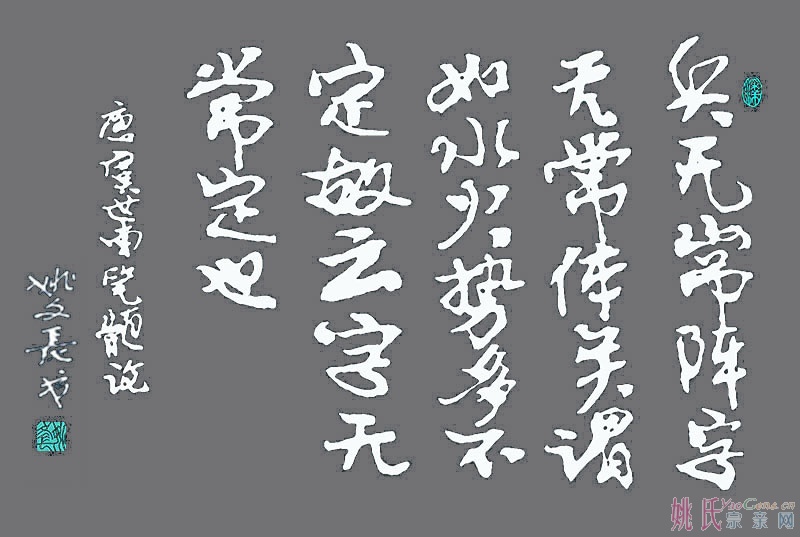 兵无常阵字
无常体矣谓
如水火势多不
定故云字无
常定也
唐虞世南笔髓说
姚文長书
姚氏宗亲网
YaoGens.cn